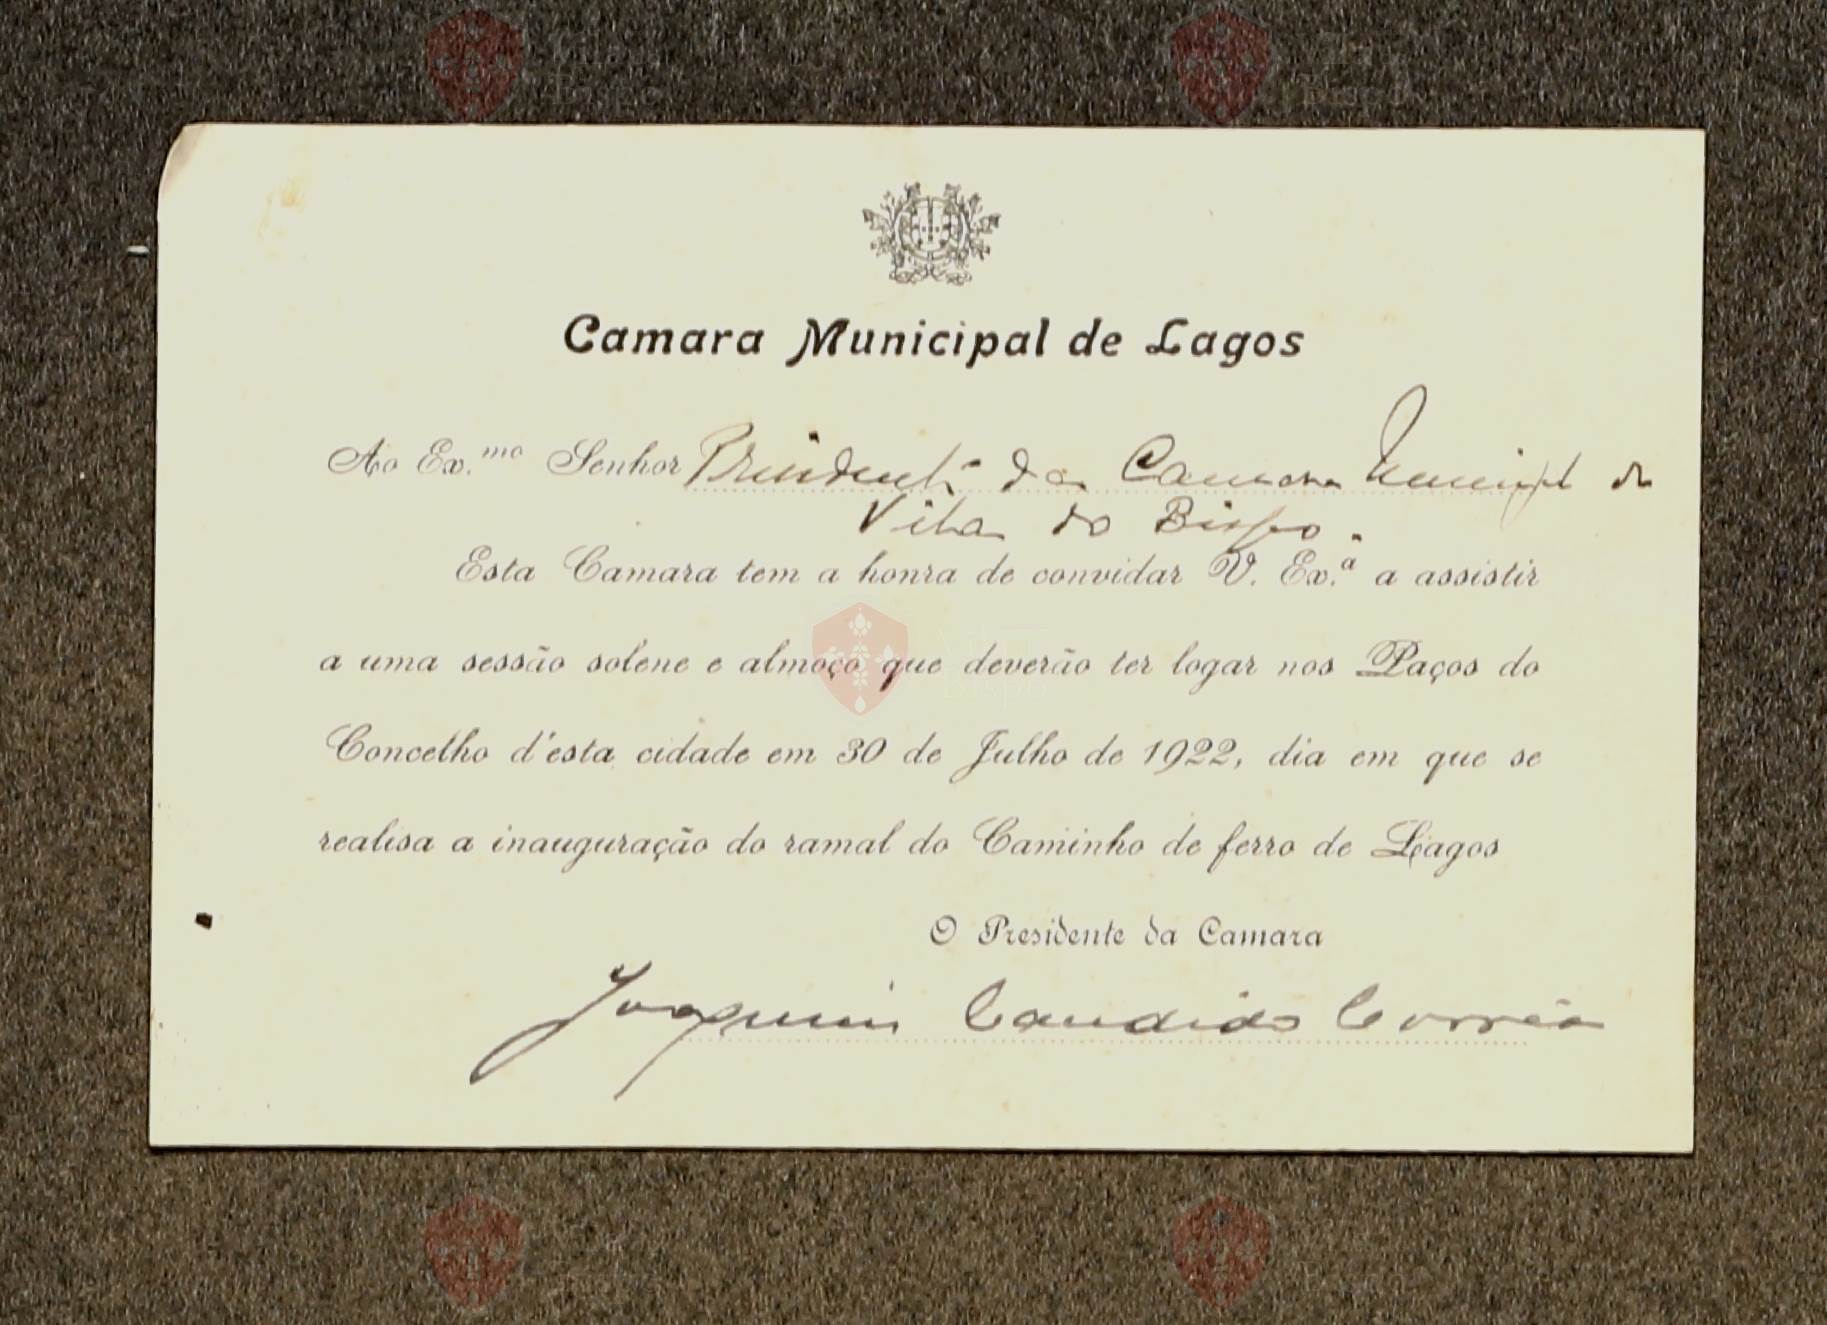 Camara Municipal de Lagos
Ao Ex.mo Senhor Presidente da Camara Municipal de
Vila do Bispo.
Esta Camara tem a honra de convidar V. Ex.a a assistir
a uma sessão solene e almoço que deverão ter logar nos Paços do
Concelho d'esta cidade em 30 de Julho de 1922, dia em que se
realisa a inauguração do ramal do Caminho de ferro de Lagos
O Presidente da Camara
Joaquim Candido Corrêa
Vila do
Bispo